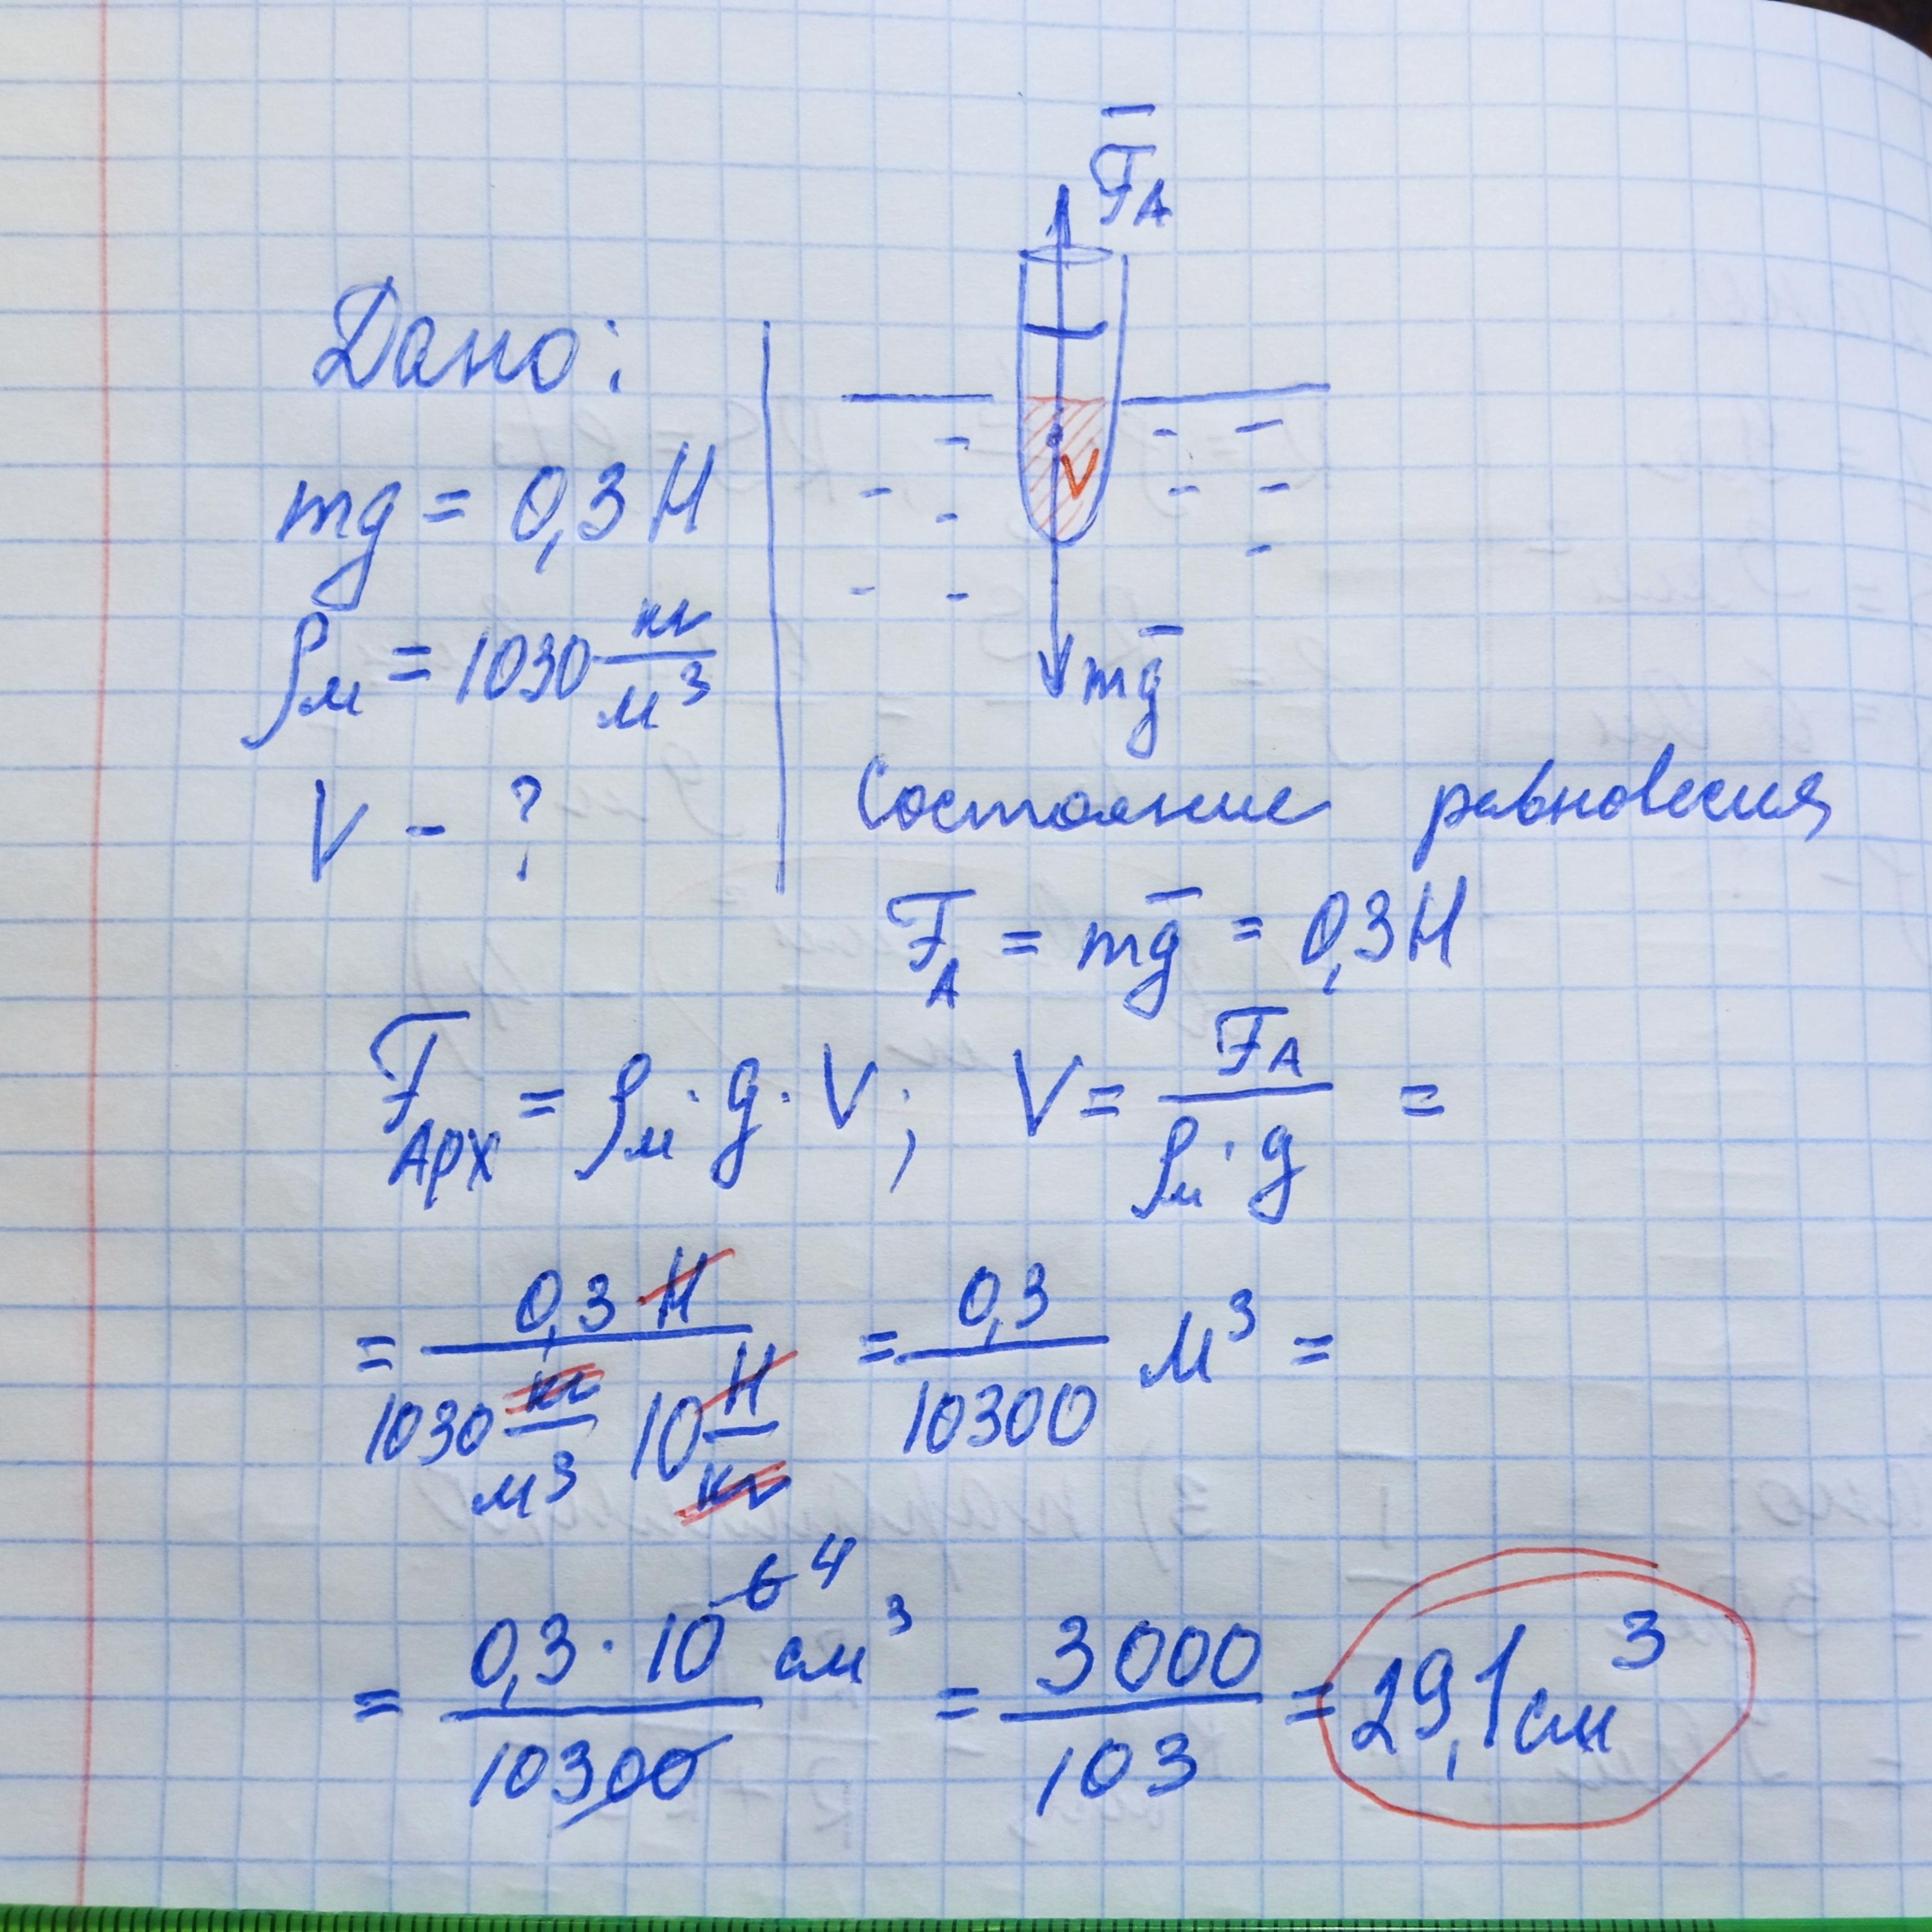 F̅_A
Дано:
mg = 0,3 Н
ρ_м = 1030 кг/м³
V - ?
V
mg̅
Состояние равновесия
F̅_A = mg̅ = 0,3 Н
F̅_Арх = ρ_м · g · V; V = F_A / (ρ_м · g) =
= 0,3 Н / (1030 кг/м³ 10 Н/кг) = 0,3/10300 м³ =
= 0,3 · 10^6 4 см³ / 10300 = 3000/103 = 29,1 см³